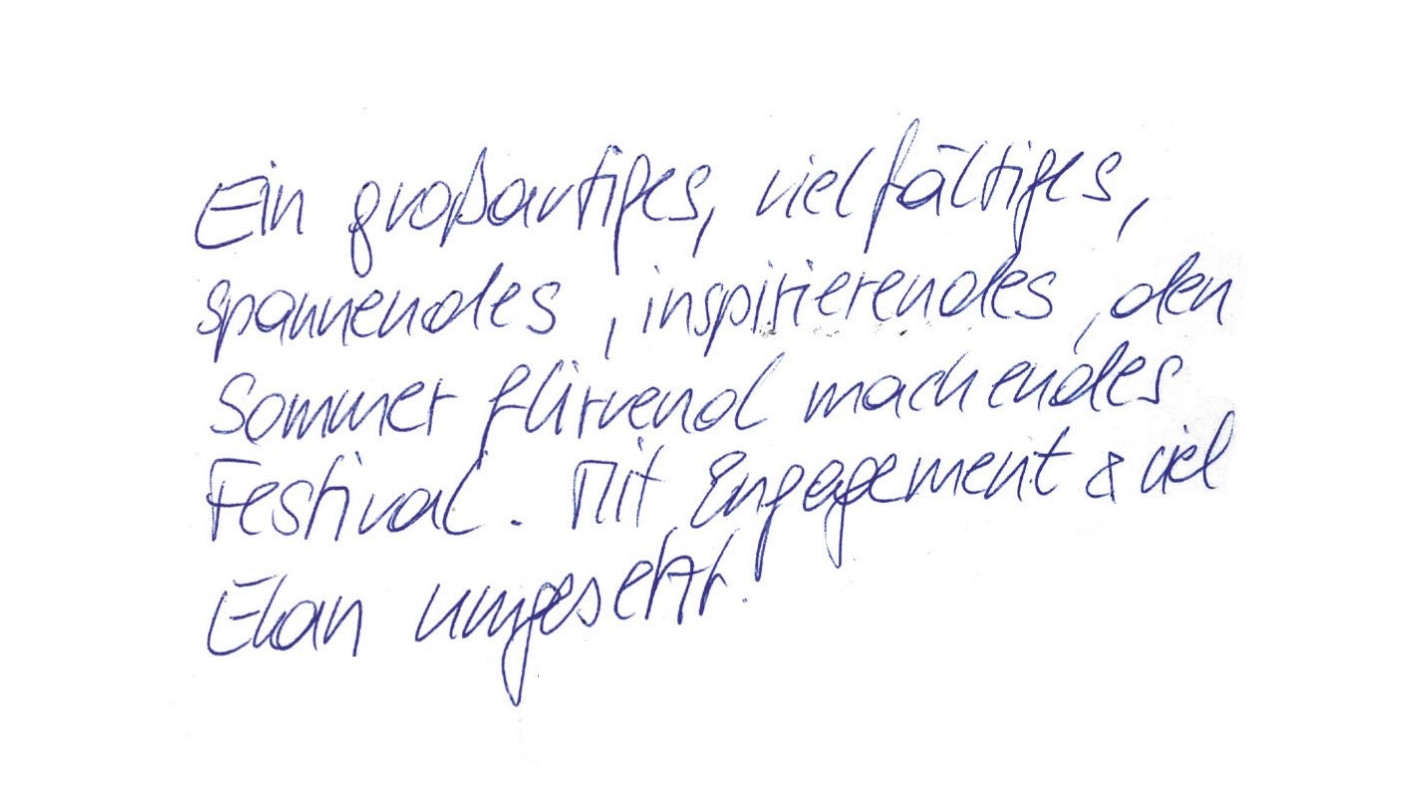 Ein großartiges, vielfältiges,
spannendes, inspirierendes, den
Sommer flirrend machendes
Festival. Mit Engagement & viel
Elan umgesetzt!